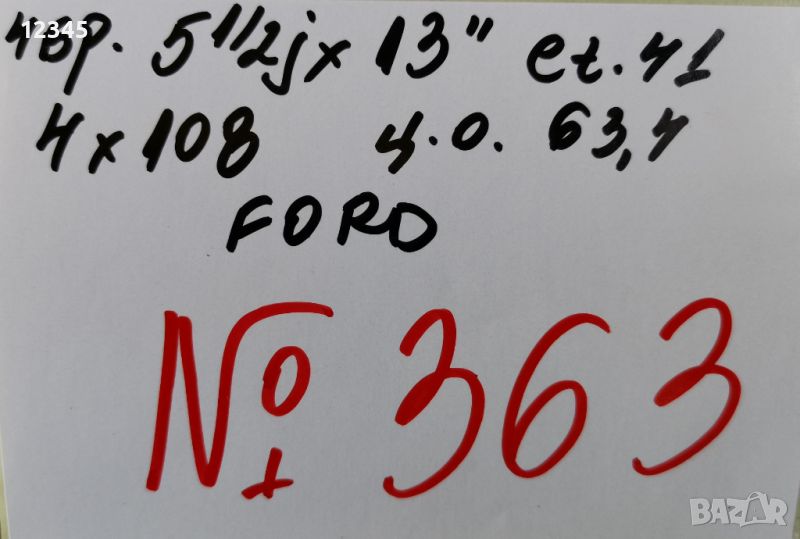 12345
4бр. 5 1/2j x 13" et. 41
4 x 108 ц.о. 63,4
FORD
№ 363
BAZAR